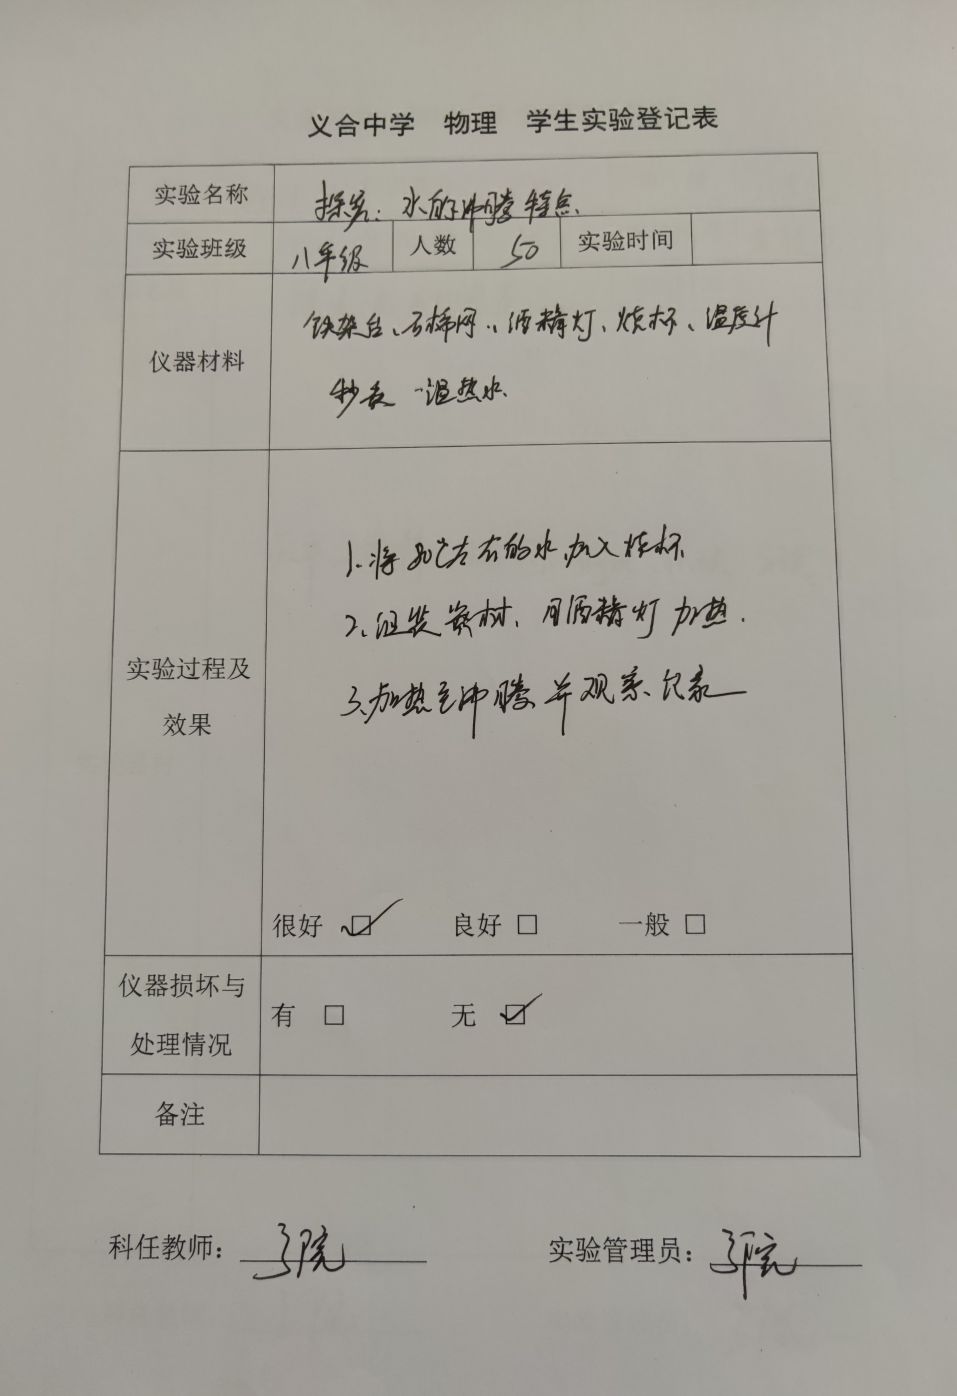 义合中学 物理 学生实验登记表
实验名称 探究:水的沸腾特点
实验班级 八年级 人数 50 实验时间
仪器材料 铁架台、石棉网、酒精灯、烧杯、温度计
秒表 温热水
1、将 左右的水加入烧杯
2、组装器材、用酒精灯加热.
3、加热至沸腾并观察、记录
实验过程及
效果
很好 ☑ 良好 □ 一般 □
仪器损坏与
处理情况
有 □ 无 ☑
备注
科任教师: 实验管理员: